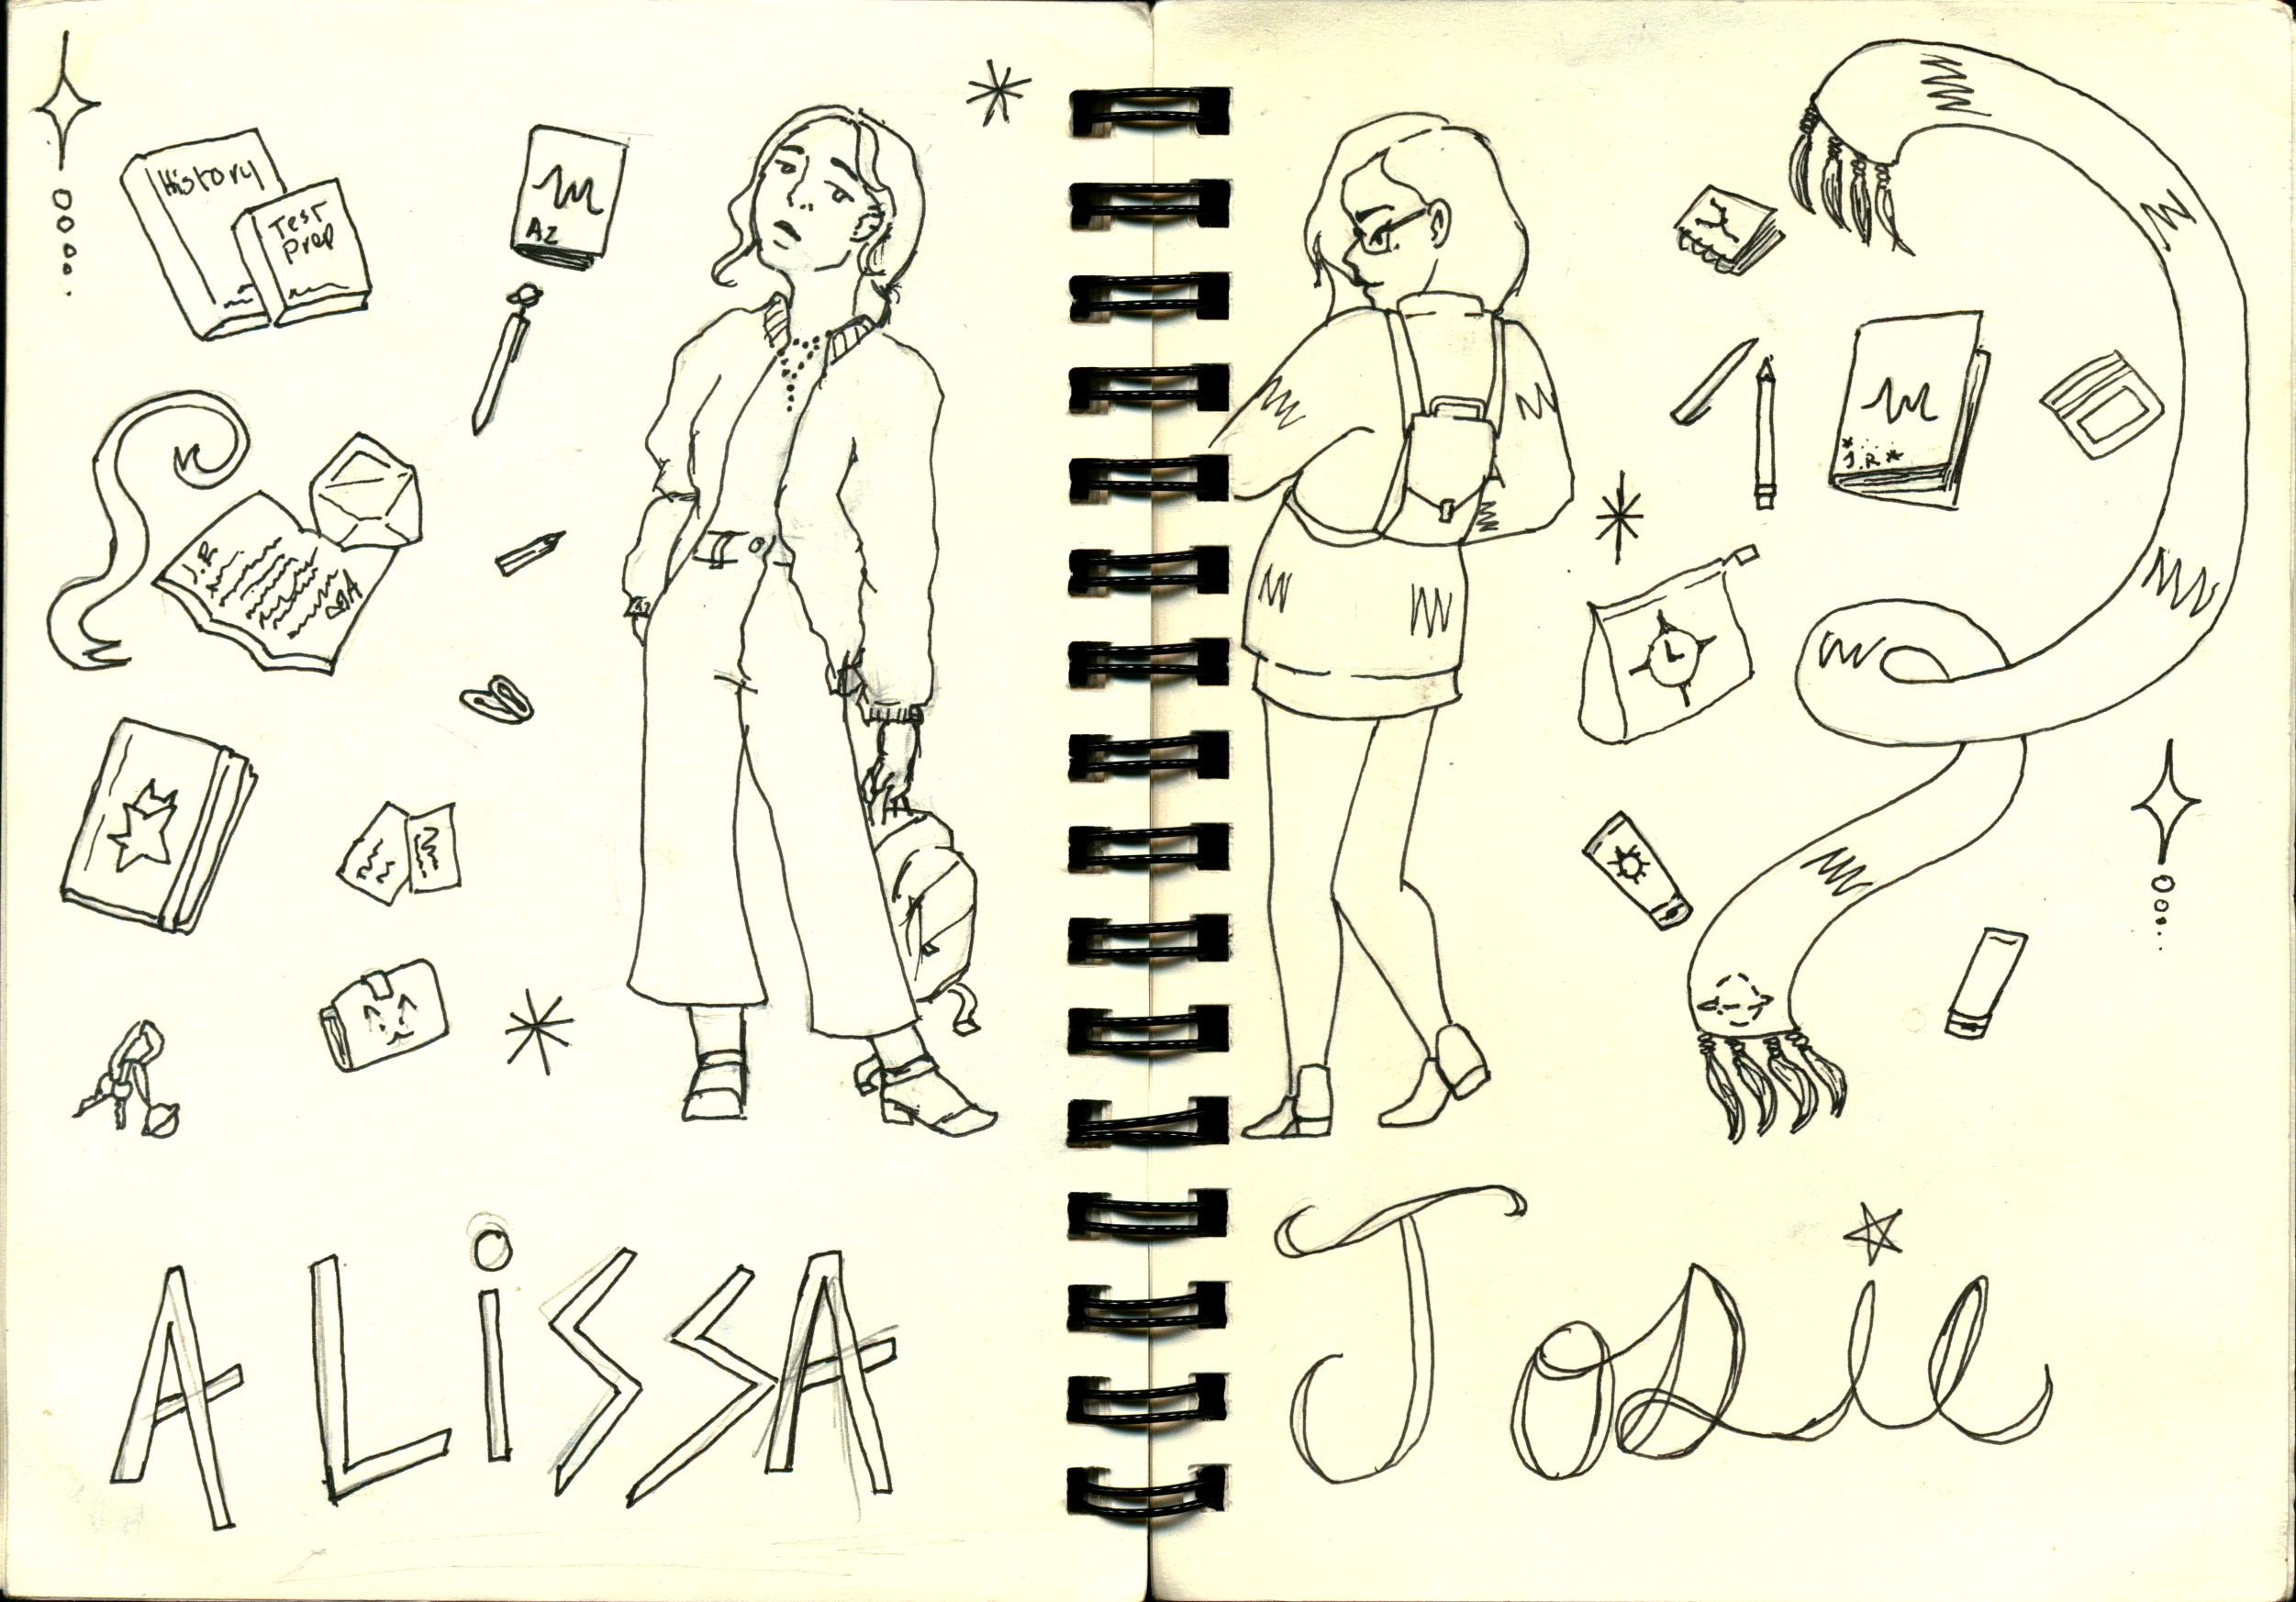 History
Test
Prep
AZ
J.R
J.R
ALiSSA
Josie